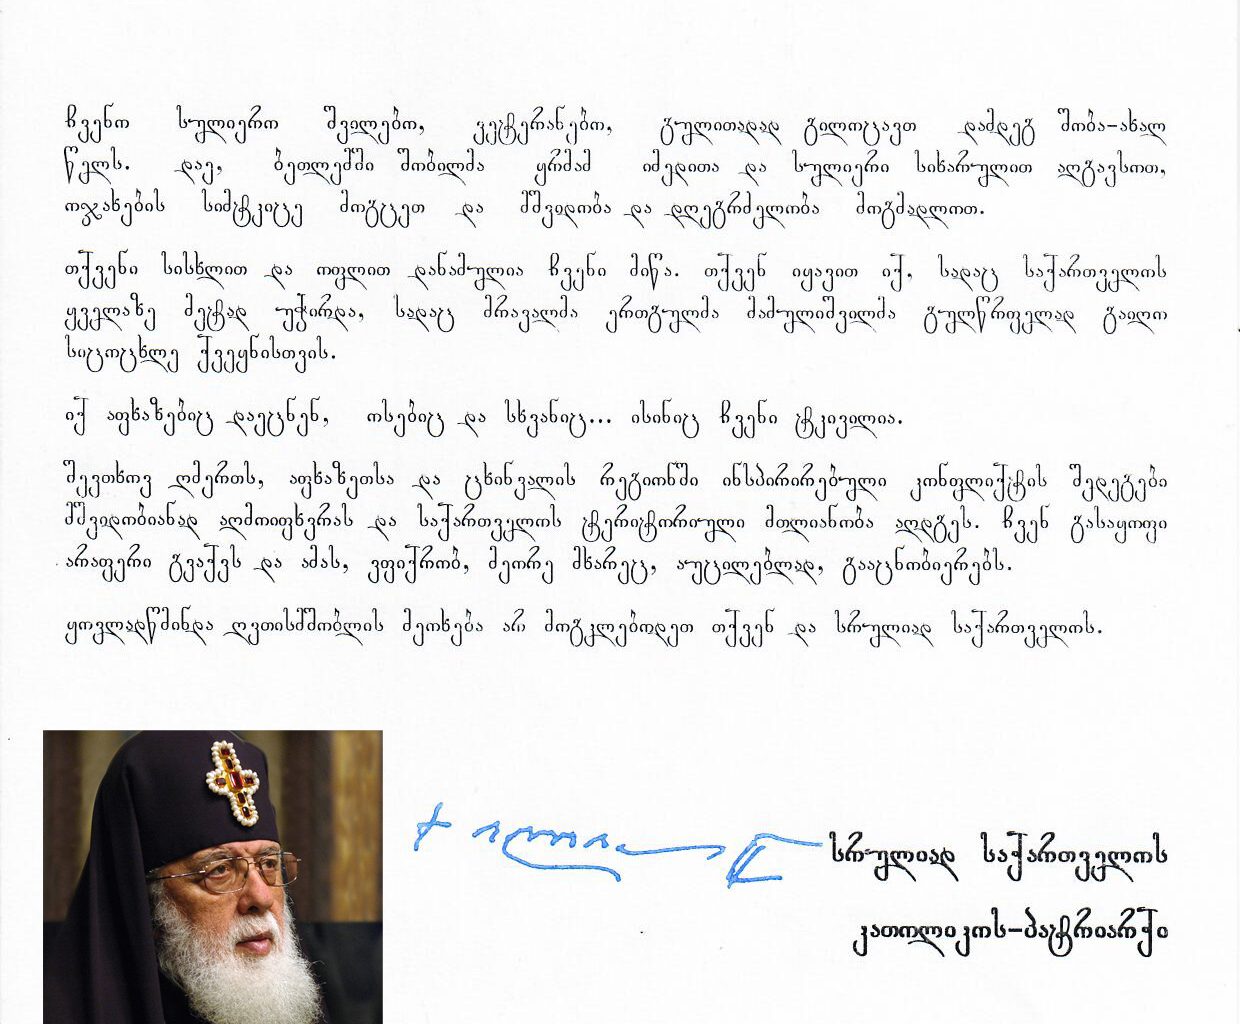 ჩვენო სულიერო შვილებო, ვეტერანებო, გულითადად გილოცავთ დამდეგ შობა-ახალ
წელს. დაე, ბეთლემში შობილმა ყრმამ იმედითა და სულიერი სიხარულით აღგავსოთ,
ოჯახების სიმტკიცე მოგცეთ და მშვიდობა და დღეგრძელობა მოგმადლოთ.
თქვენი სისხლით და ოფლით დანამულია ჩვენი მიწა. თქვენ იყავით იქ, სადაც საქართველოს
ყველაზე მეტად უჭირდა, სადაც მრავალმა ერთგულმა მამულიშვილმა გულწრფელად გაიღო
სიცოცხლე ქვეყნისთვის.
იქ აფხაზებიც დაეცნენ, ოსებიც და სხვანიც... ისინიც ჩვენი ტკივილია.
შევთხოვ ღმერთს, აფხაზეთსა და ცხინვალის რეგიონში ინსპირირებული კონფლიქტის შედეგები
მშვიდობიანად აღმოიფხვრას და საქართველოს ტერიტორიული მთლიანობა აღდგეს. ჩვენ გასაყოფი
არაფერი გვაქვს და ამას, ვფიქრობ, მეორე მხარეც, აუცილებლად, გააცნობიერებს.
ყოვლადწმინდა ღვთისმშობლის მეოხება არ მოგკლებოდეთ თქვენ და სრულიად საქართველოს.
სრულიად საქართველოს
კათოლიკოს-პატრიარქი